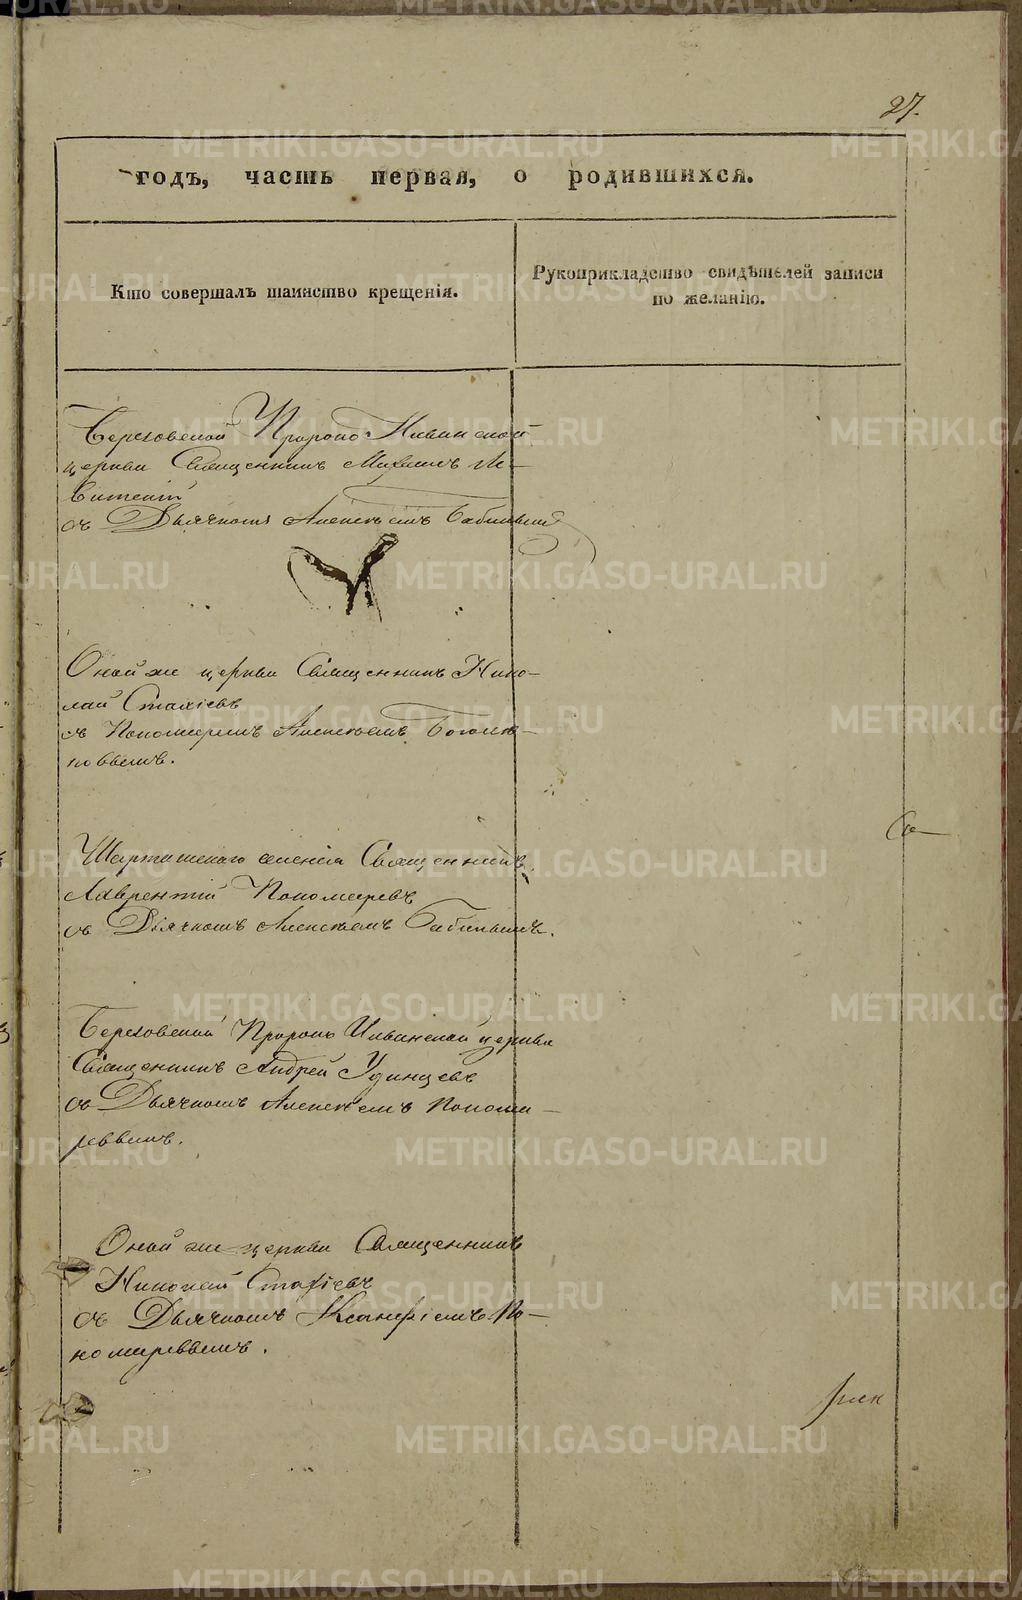 27.
годъ, часть первая, о родившихся.
Кто совершалъ таинство крещенія.
Рукоприкладство свидѣтелей записи
по желанію.
Березовской Пророко Ильинской
церкви Священникъ Михаилъ Ле-
витскій
съ Дьячкомъ Алексѣемъ Бабинымъ
Оной же церкви Священникъ Нико-
лай Стахіевъ
съ Пономаремъ Алексѣемъ Боголѣ-
повымъ.
Шарташскаго селенія Священникъ
Лаврентій Пономаревъ
съ Дьячкомъ Алексѣемъ Бабинымъ.
Березовской Пророко Ильинской церкви
Священникъ Андрей Удинцевъ
съ Дьячкомъ Алексѣемъ Понома-
ревымъ.
Оной же церкви Священникъ
Николай Стахіевъ
съ Дьячкомъ Ксанфіемъ По-
номаревымъ.
METRIKI.GASO-URAL.RU